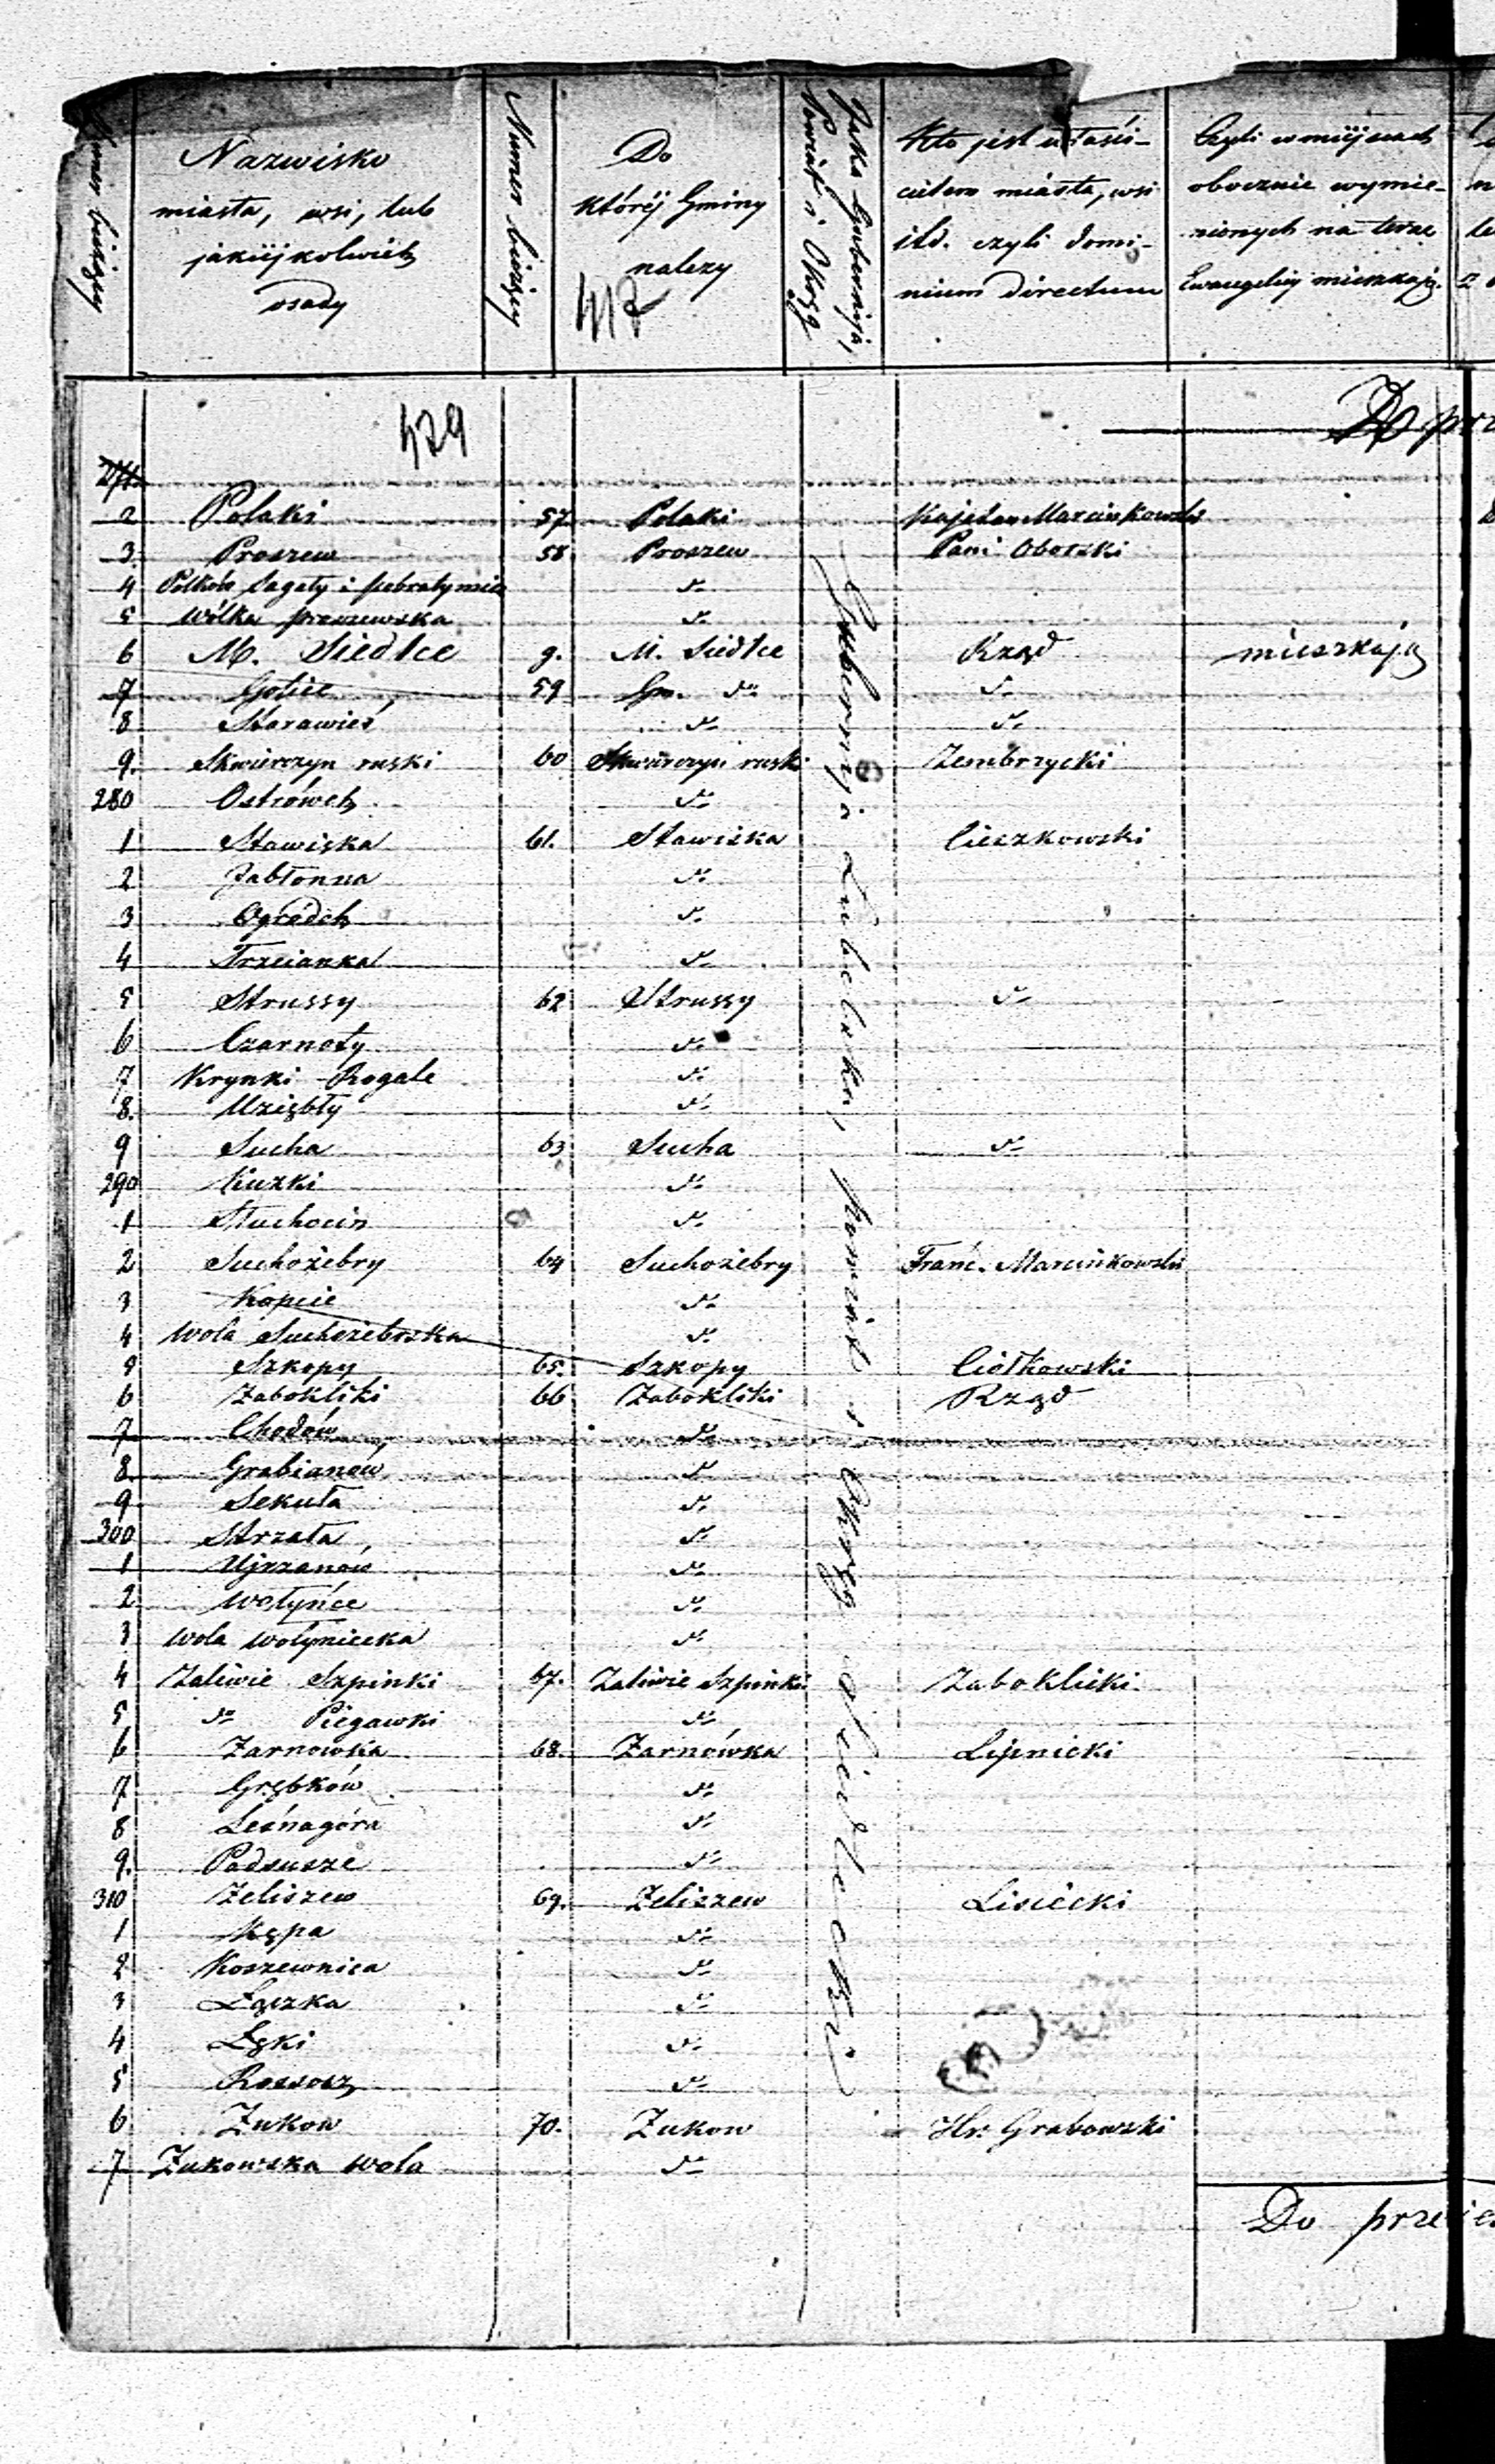 Numer bieżący
Nazwisko
miasta, wsi, lub
jakiéjkolwiek
osady
Numer bieżący
Do
któréj Gminy
należy
417
Jaka Gubernija,
Powiat i Okręg
Kto jest właści-
cielem miasta, wsi
itd. czyli domi-
nium directum
Czyli w miéjscach
obocznie wymie-
nionych na teraz
Ewangelicy mieszkają.
429
Gubernija Lubelska, Powiat i Okręg Siedlecki
2 Polaki 57 Polaki Kajetan Marcinkowski
3. Proszew 58 Proszew Pani Oborski
4 Polków Sagały i dº
5 Wólka proszewska dº
6 M. Siedlce 9. M. Siedlce Rząd mieszkają
7 Golice 59 Gm. dº dº
8 Starawieś dº dº
9. Skwierczyn ruski 60 Skwierczyn ruski Zembrzycki
280 Ostrówek dº
1 Stawiska 61. Stawiska Cieszkowski
2 Jabłonna dº
3 Ogródek dº
4 Trzcianka dº
5 Strussy 62 Strussy dº
6 Czarnoty dº
7 Krynki Rogale dº
8. Uziębły dº
9 Sucha 63 Sucha dº
290 Kuzki dº
1 Stuchocin dº
2 Suchożebry 64 Suchożebry Franc. Marcinkowski
3 Kopcie dº
4 Wola Suchożebrska dº
5 Szkopy 65. Szkopy Ciołkowski
6 Żabokliki 66 Żabokliki Rząd
7 Chodów dº
8. Grabianów dº
9 Sekuła dº
300 Strzała dº
1 Ujrzanów dº
2 Wołyńce dº
3 Wola Wołyniecka dº
4 Zaliwie Szpinki 67. Zaliwie Szpinki Zaboklicki
5 dº Piegawki dº
6 Żarnowka 68. Żarnówka Lipnicki
7 Grębków dº
8 Leśnagóra dº
9. Podsusze dº
310 Żeliszew 69. Żeliszew Lisiecki
1 Kępa dº
2 Koszewnica dº
3 Łączka dº
4 Łęki dº
5 Rososz dº
6 Żukow 70. Żukow Hr. Grabowski
7 Żukowska wola dº
Do